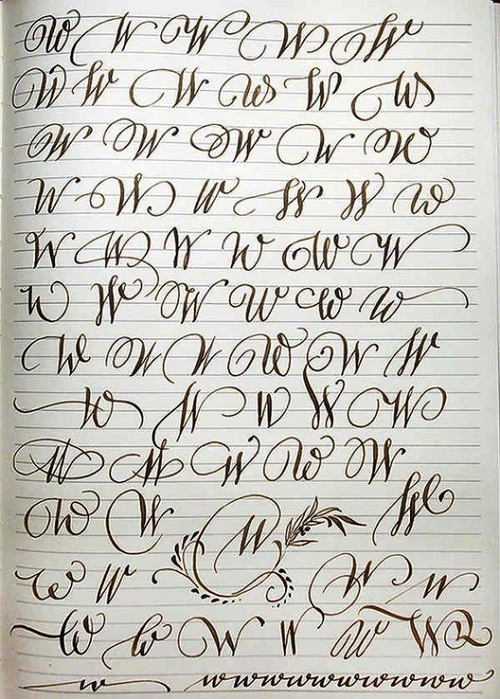 W W W W W
W W W W W W
W W W W W
W W W W W W
W W W W W W
W W W W W W
W W W W W W
W W W W W
W W W W W
W W W W
W W W W
W W W W W W
w wwwwwwwwww